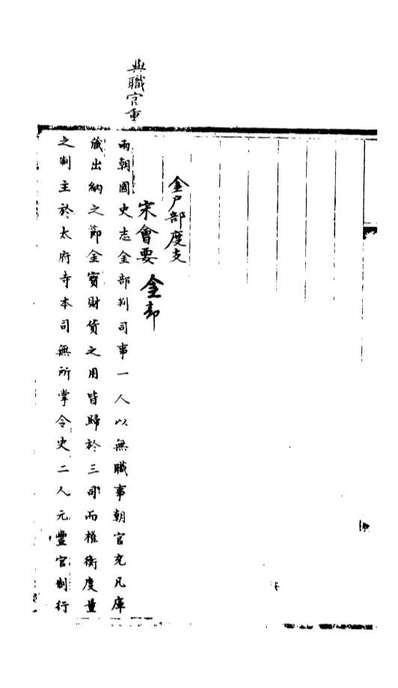 典職官重
金戶部度支
宋會要 金部
兩朝國史志金部判司事一人以無職事朝官充凡庫
藏出納之節金寶財貨之用皆歸於三司而權衡度量
之制主於太府寺本司無所掌令史二人元豐官制行